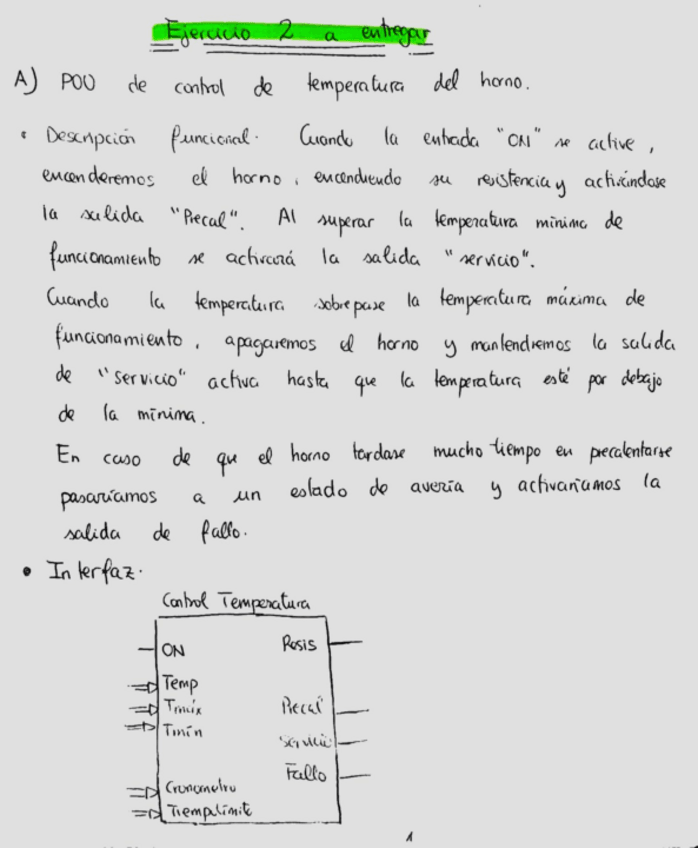 Ejercicio 2 a entregar
A) POU de control de temperatura del horno.
• Descripción funcional. Cuando la entrada "ON" se active,
encenderemos el horno, encendiendo su resistencia y activándose
la salida "Precal". Al superar la temperatura mínima de
funcionamiento se activará la salida "servicio".
Cuando la temperatura sobrepase la temperatura máxima de
funcionamiento, apagaremos el horno y mantendremos la salida
de "servicio" activa hasta que la temperatura esté por debajo
de la mínima.
En caso de que el horno tardase mucho tiempo en precalentarse
pasaríamos a un estado de avería y activaríamos la
salida de fallo.
• Interfaz.
Control Temperatura
ON Resis
Temp
Tmáx Precal
Tmín Servicio
Fallo
Cronometro
TiempLimite
1